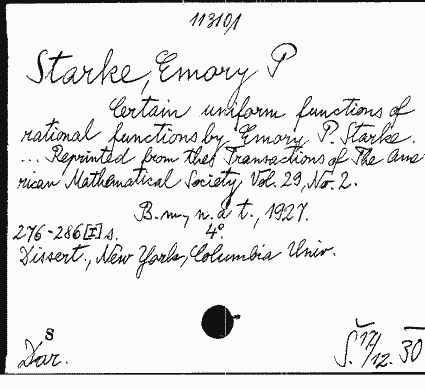 113101
Starke, Emory P
Certain uniform functions of
rational functions by Emory P. Starke.
... Reprinted from the Transactions of The Ame-
rican Mathematical Society, Vol. 29, No. 2.
B. m., n. d. t., 1927.
276-286 [I] s. 4°
Dissert., New York, Columbia Univ.
s
Dar.
17/12. 30